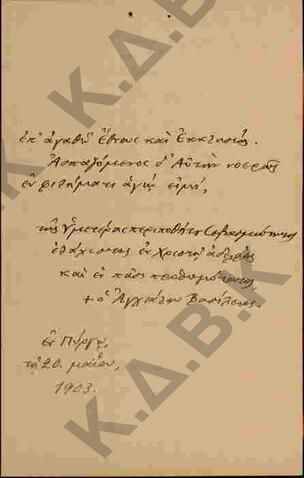 ἐπ' ἀγαθῷ Ἔθνους καὶ Ἐκκλησίας.
Ἀσπαζόμενος δ' Αὐτὴν νοερῶς
ἐν φιλήματι ἁγίῳ εἰμί,
τῆς Ὑμετέρας περιποθήτου Σεβασμιότητος
ἐλάχιστος ἐν Χριστῷ ἀδελφὸς
καὶ ἐν πᾶσι προθυμότατος
+ ὁ Ἀγχιάλου Βασίλειος.
ἐν Πύργῳ,
τῇ 20 μαΐου,
1903.
Κ.Δ.Β.Κ
Κ.Δ.Β.Κ